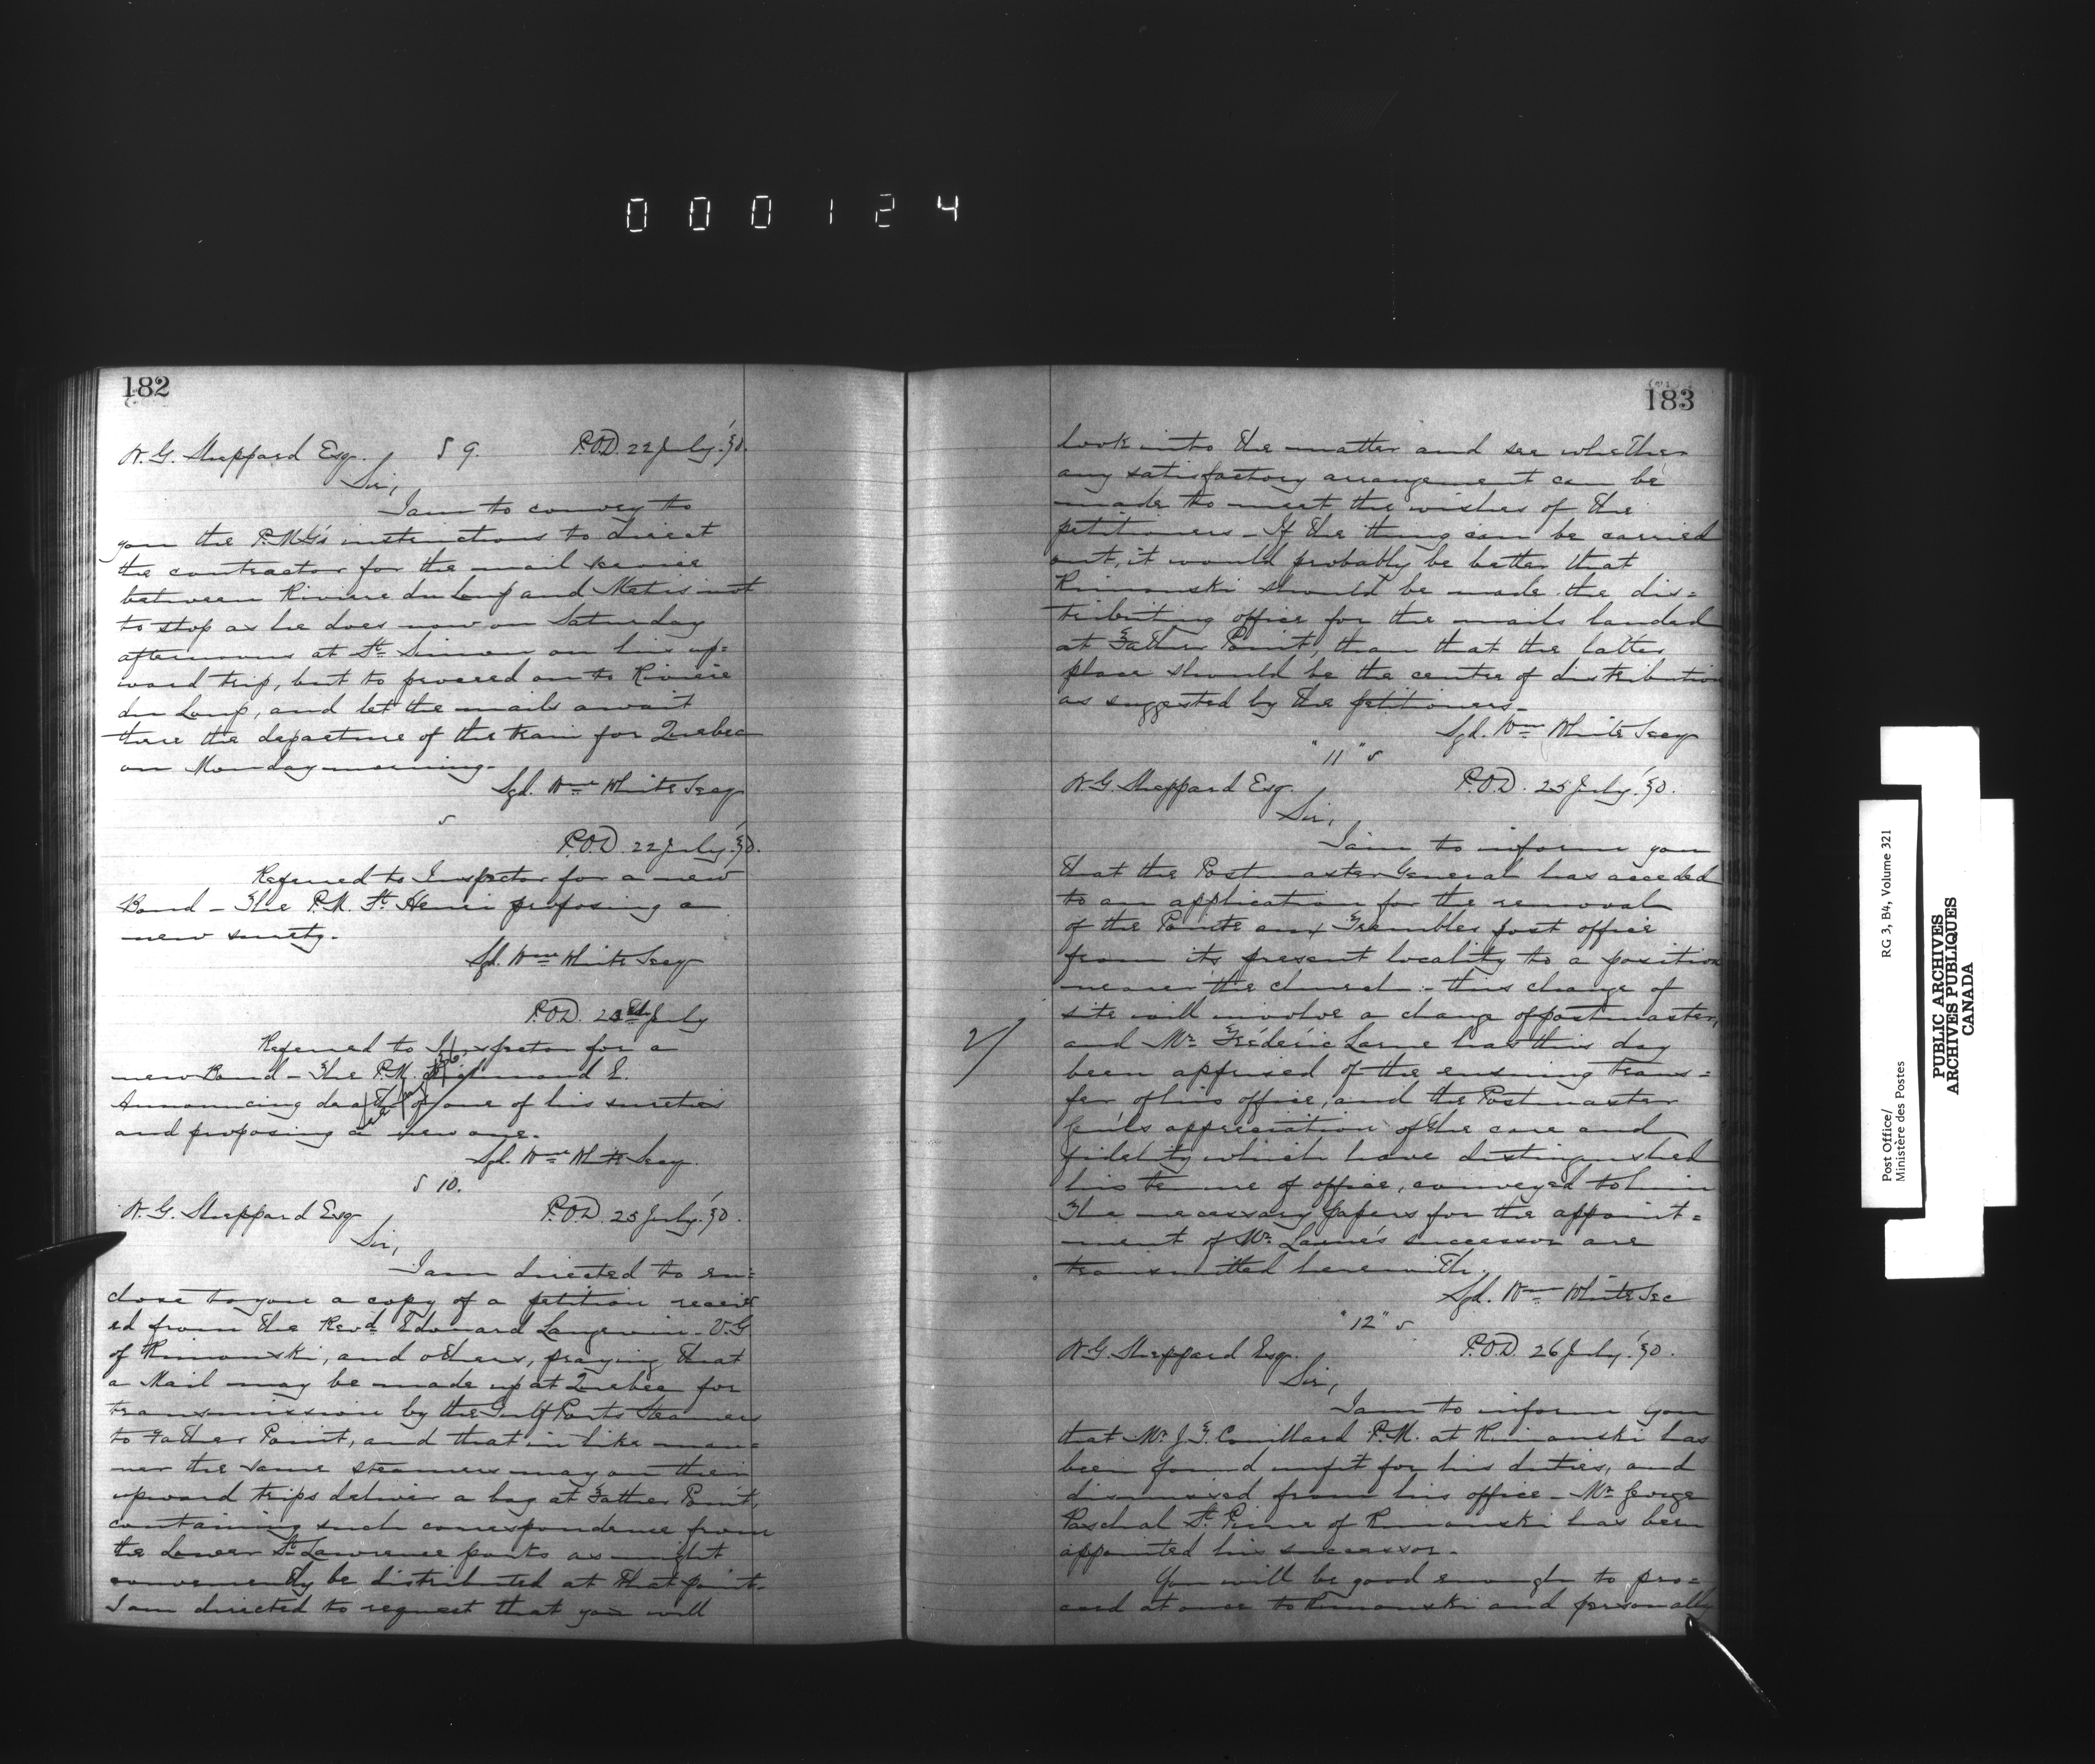 000124
182
W. G. Sheppard Esq. S 9. P.O.D. 22 July '70.
Sir,
I am to convey to
you the P.M.G's instructions to direct
the contractor for the mail service
between Riviere du Loup and Metis not
to stop as he does now on Saturday
afternoons at St. Simon on his up=
ward trip, but to proceed on to Riviere
du Loup, and let the mails await
there the departure of the train for Quebec
on Monday morning.
Sgd. Wm White Secy
P.O.D. 22 July '70.
Referred to Inspector for a new
Bond – The P.M. St. Henri proposing a
new surety.
Sgd. Wm White Secy
P.O.D. 23rd July
Referred to Inspector for a
new Bond – The P.M. Richmond E.
Announcing death of one of his sureties
and proposing a new one.
Sgd. Wm White Secy.
S 10.
W. G. Sheppard Esq P.O.D. 25 July '70.
Sir,
I am directed to en=
close to you a copy of a petition receiv
ed from the Revd. Edouard Langevin – V.G
of Rimouski, and others, praying that
a Mail may be made up at Quebec for
transmission by the Gulf Ports Steamers
to Father Point, and that in like man=
ner the same steamers may on their
upward trips deliver a bag at Father Point,
containing such correspondence from
the Lower St. Lawrence ports as might
conveniently be distributed at that point.
I am directed to request that you will
183
look into the matter and see whether
any satisfactory arrangement can be
made to meet the wishes of the
petitioners – If the thing can be carried
out, it would probably be better that
Rimouski should be made the dis=
tributing office for the mails landed
at Father Point, than that the latter
place should be the centre of distribution
as suggested by the petitioners –
Sgd. Wm White Secy
"11" S
W. G. Sheppard Esq. P.O.D. 25 July '70.
Sir,
I am to inform you
that the Postmaster General has acceded
to an application for the removal
of the Pointe aux Trembles post office
from its present locality to a position
nearer the church – this change of
site will involve a change of postmaster,
and Mr. Fréderic Larue has this day
been apprised of the ensuing trans=
fer of his office, and the Postmaster
Genl's appreciation of the care and
fidelity which have distinguished
his tenure of office, conveyed to him
The necessary papers for the appoint=
ment of Mr. Larue's successor are
transmitted herewith.
Sgd. Wm White Sec
"12" S
W. G. Sheppard Esq. P.O.D. 26 July '70.
Sir,
I am to inform you
that Mr. J. F. Couillard P.M. at Rimouski has
been found unfit for his duties, and
dismissed from his office – Mr. George
Paschal St. Pierre of Rimouski has been
appointed his successor –
You will be good enough to pro=
ceed at once to Rimouski and personally
Post Office/
Ministère des Postes
RG 3, B4, Volume 321
PUBLIC ARCHIVES
ARCHIVES PUBLIQUES
CANADA